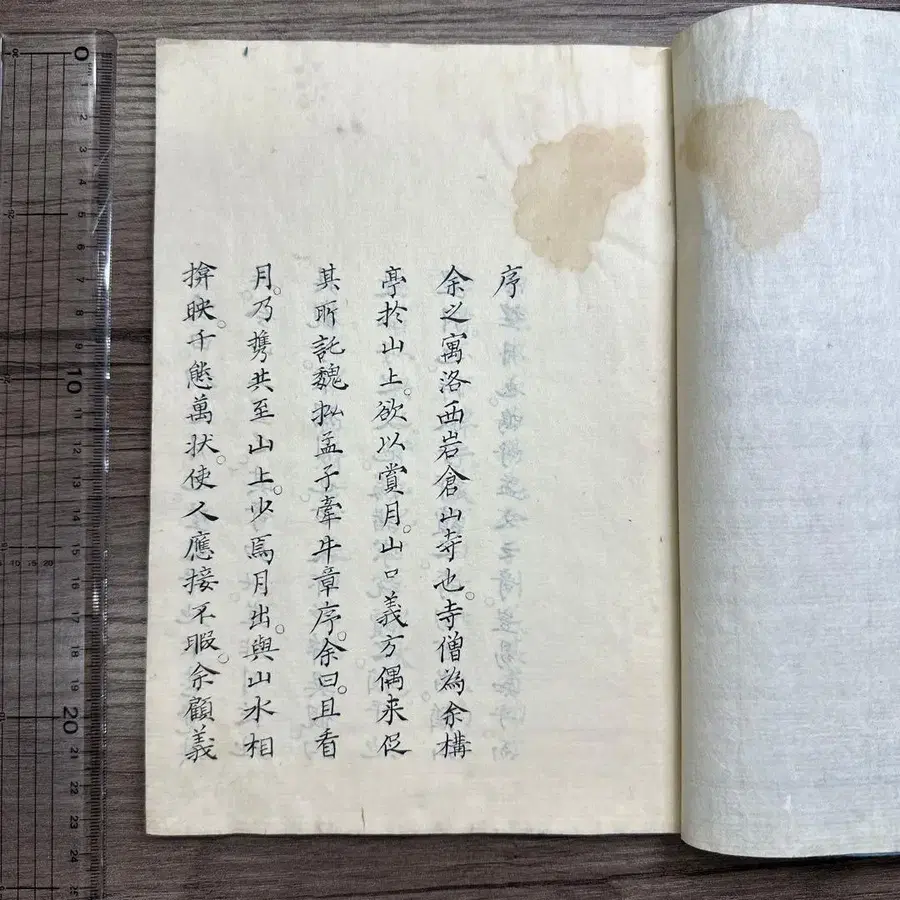 序
余之寓洛西岩倉山寺也。寺僧為余構
亭於山上。欲以賞月。山口義方偶来促
其所託魏叔孟子牽牛章序。余曰。且看
月。乃携共至山上。少焉月出。與山水相
揜映。千態萬状。使人應接不暇。余顧義
0
10
20